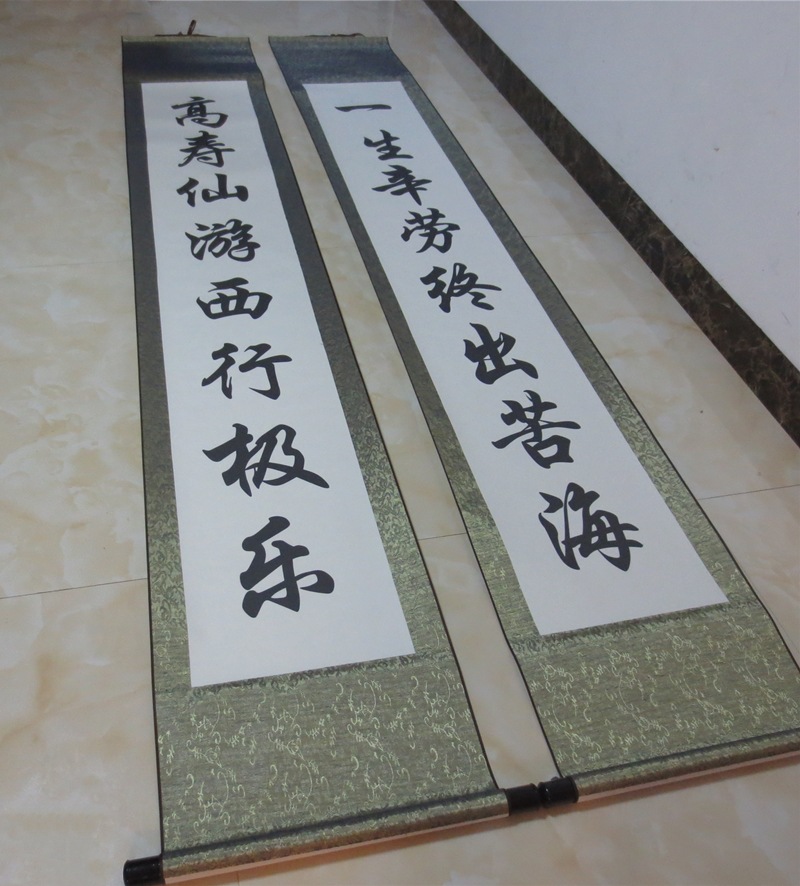 一生辛劳终出苦海
高寿仙游西行极乐